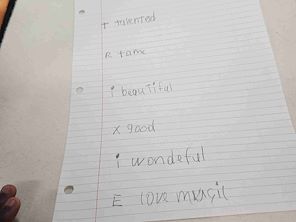 T talented
R tame
i beautiful
X good
i wondeful
E love musgil